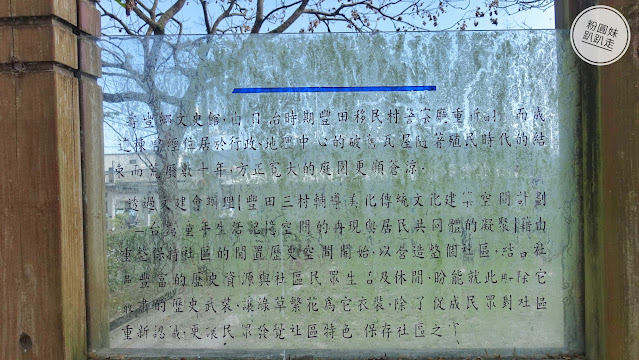 粉圓妹
趴趴走
壽豐鄉文史館,由日治時期豐田移民村警察廳重新 而成
這棟曾經位居於行政、地理中心的破舊瓦屋隨著殖民時代的結
束而荒廢數十年,方正寬大的庭園更顯蒼涼。
透過文建會辦理「豐田三村輔導美化傳統文化建築空間計劃
台灣重 生 記憶空間的再現與居民共同體的凝聚」藉由
重 保持社區的閒置歷史空間開始,以營造整個社區,結合社
區豐富的歷史資源與社區民眾生活及休閒,盼能就此 除它
肅的歷史武裝,讓綠草繁花為它衣裝,除了促成民眾對社區
重新認識,更讓民眾發覺社區特色 保存社區之